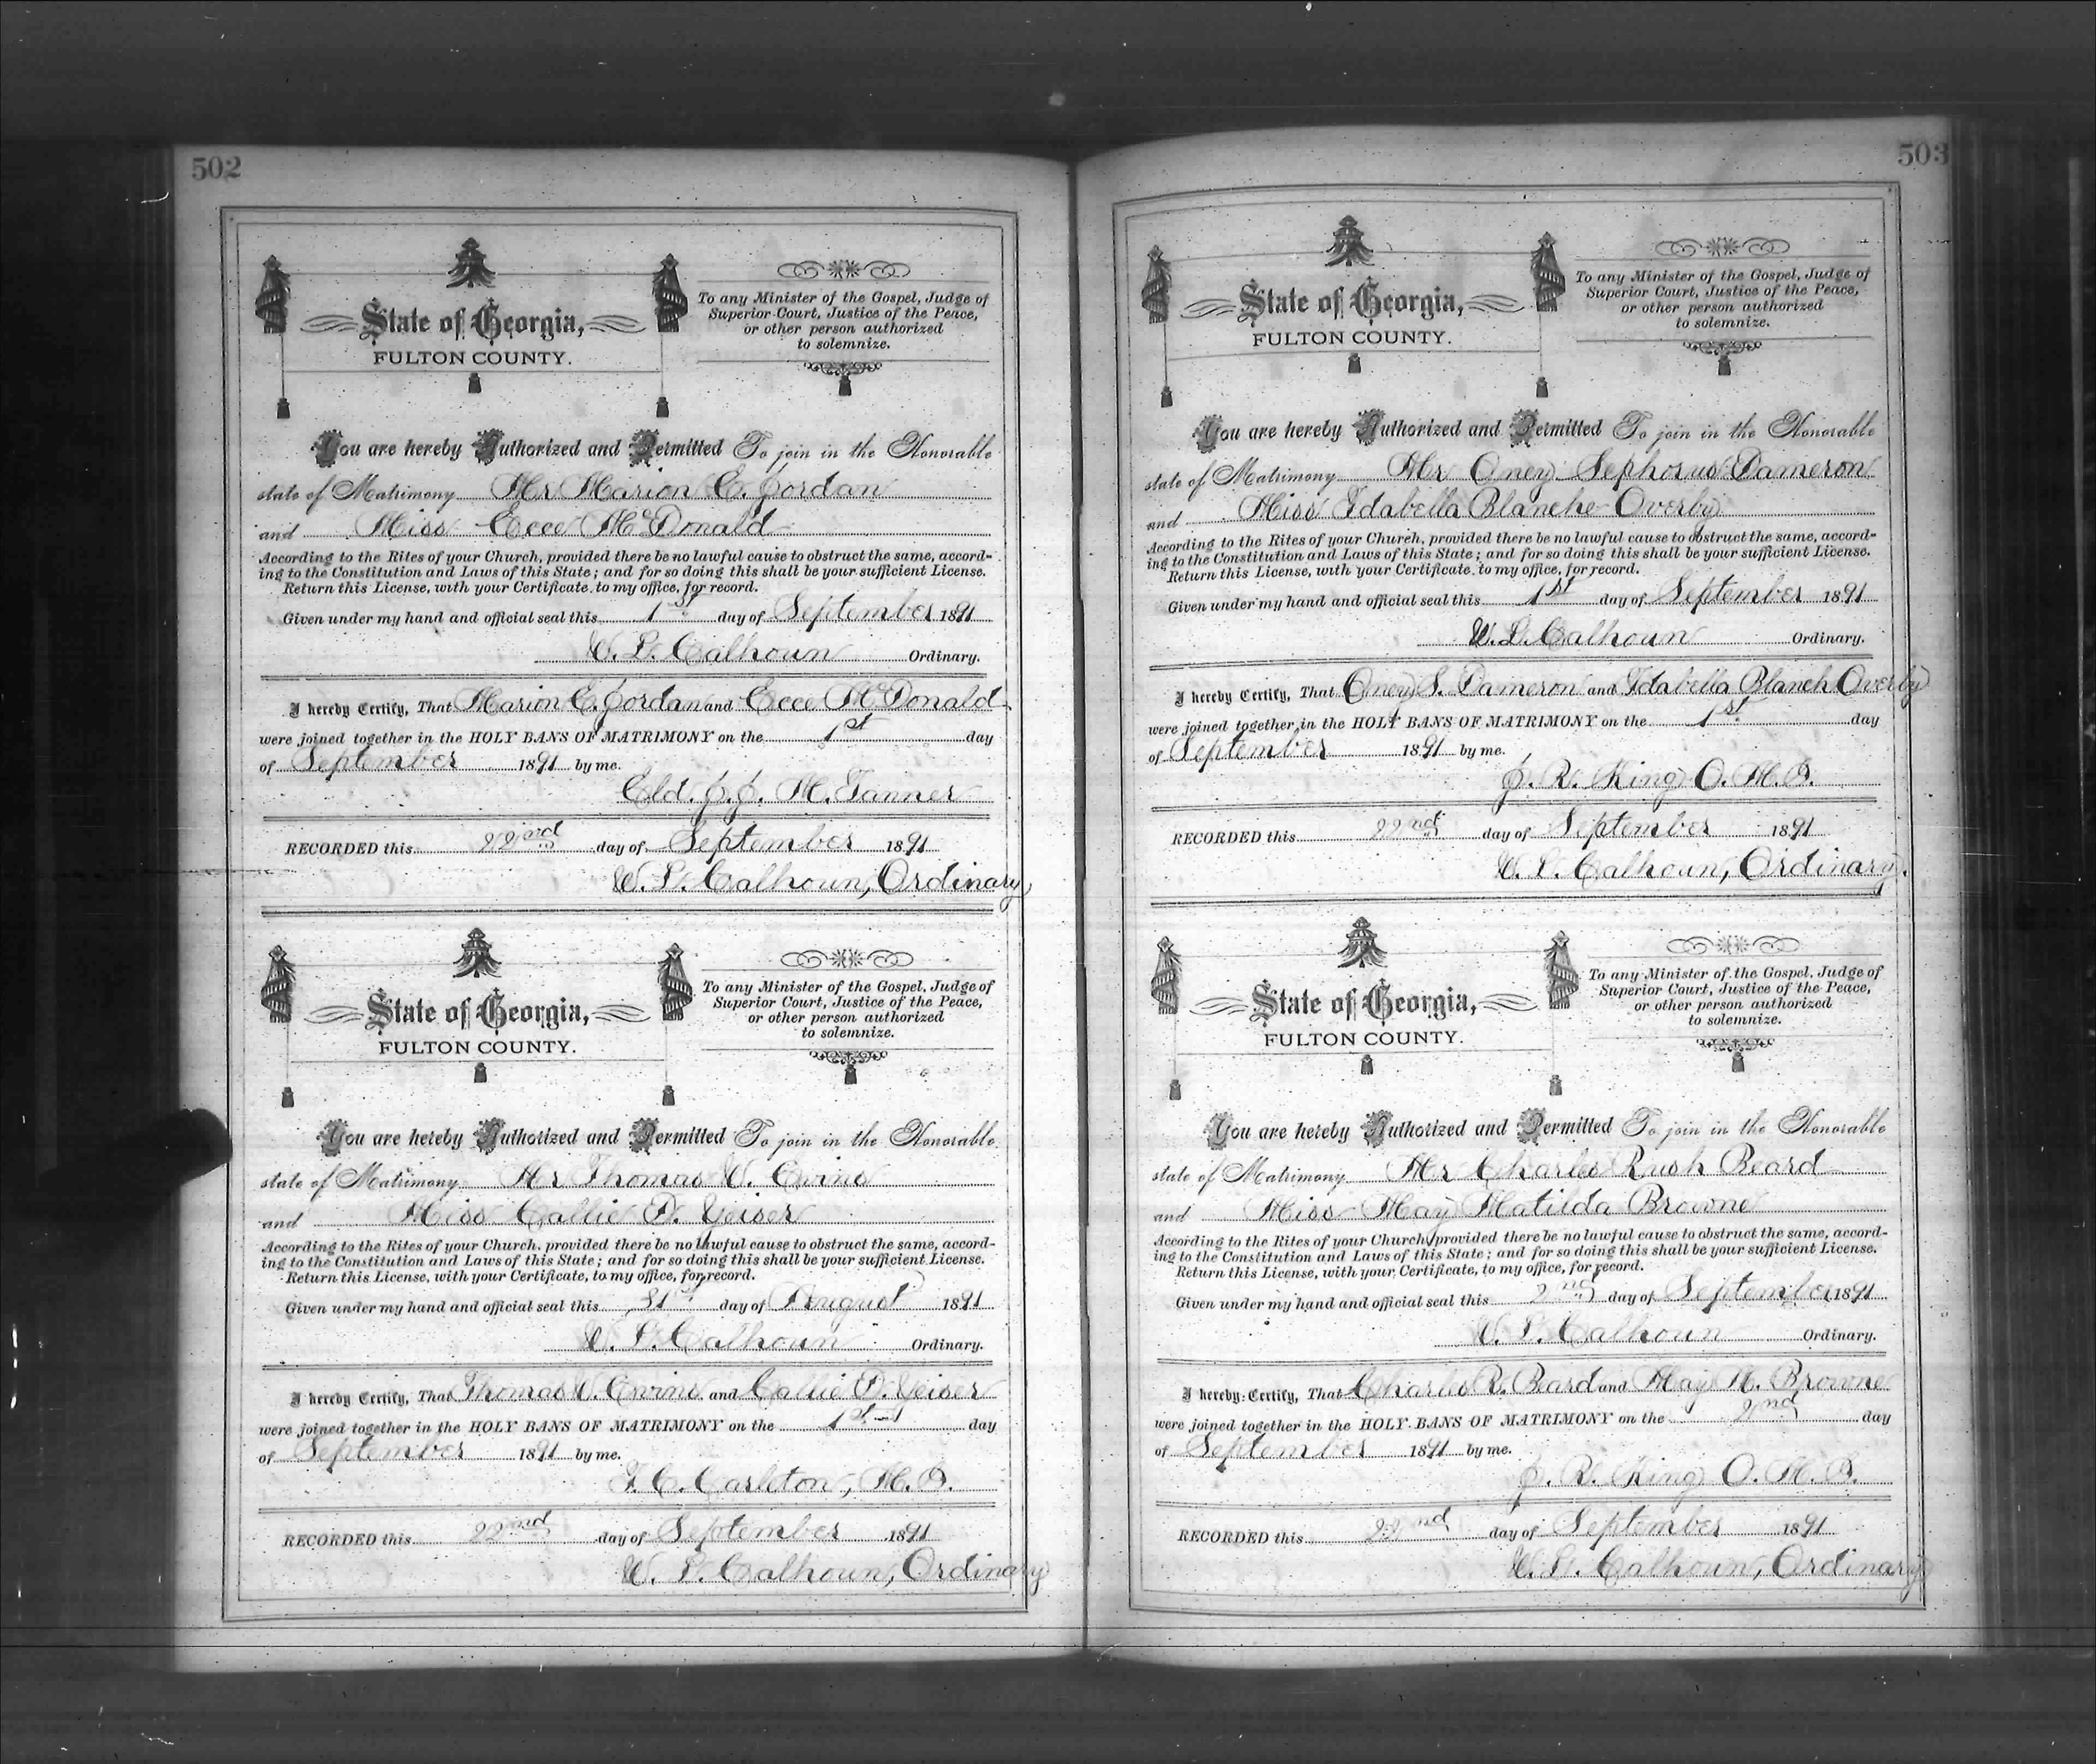 502
State of Georgia,
FULTON COUNTY.
To any Minister of the Gospel, Judge of
Superior Court, Justice of the Peace,
or other person authorized
to solemnize.
You are hereby Authorized and Permitted To join in the Honorable
state of Matrimony Mr Marion E. Jordan
and Miss Ecce McDonald
According to the Rites of your Church, provided there be no lawful cause to obstruct the same, accord-
ing to the Constitution and Laws of this State; and for so doing this shall be your sufficient License.
Return this License, with your Certificate to my office, for record.
Given under my hand and official seal this 1st day of September 1891
W. L. Calhoun Ordinary.
I hereby Certify, That Marion E. Jordan and Ecce McDonald
were joined together in the HOLY BANS OF MATRIMONY on the 1st day
of September 1891 by me.
Eld. J. J. M. Tanner
RECORDED this 22nd day of September 1891
W. L. Calhoun, Ordinary,
State of Georgia,
FULTON COUNTY.
To any Minister of the Gospel, Judge of
Superior Court, Justice of the Peace,
or other person authorized
to solemnize.
You are hereby Authorized and Permitted To join in the Honorable
state of Matrimony Mr Thomas W. Ewing
and Miss Callie D. Yeiser
According to the Rites of your Church, provided there be no lawful cause to obstruct the same, accord-
ing to the Constitution and Laws of this State; and for so doing this shall be your sufficient License.
Return this License, with your Certificate, to my office, for record.
Given under my hand and official seal this 31st day of August 1891
W. L. Calhoun Ordinary.
I hereby Certify, That Thomas W. Ewing and Callie D. Yeiser
were joined together in the HOLY BANS OF MATRIMONY on the 1st day
of September 1891 by me.
T. C. Carleton, M. G.
RECORDED this 22nd day of September 1891
W. L. Calhoun, Ordinary
503
State of Georgia,
FULTON COUNTY.
To any Minister of the Gospel, Judge of
Superior Court, Justice of the Peace,
or other person authorized
to solemnize.
You are hereby Authorized and Permitted To join in the Honorable
state of Matrimony Mr Oney Sephorus Dameron
and Miss Idabella Blanche Overby
According to the Rites of your Church, provided there be no lawful cause to obstruct the same, accord-
ing to the Constitution and Laws of this State; and for so doing this shall be your sufficient License.
Return this License, with your Certificate to my office, for record.
Given under my hand and official seal this 1st day of September 1891
W. L. Calhoun Ordinary.
I hereby Certify, That Oney S. Dameron and Idabella Blanch Overby
were joined together in the HOLY BANS OF MATRIMONY on the 1st day
of September 1891 by me.
J. R. King O. M. G.
RECORDED this 22nd day of September 1891
W. L. Calhoun, Ordinary.
State of Georgia,
FULTON COUNTY.
To any Minister of the Gospel, Judge of
Superior Court, Justice of the Peace,
or other person authorized
to solemnize.
You are hereby Authorized and Permitted To join in the Honorable
state of Matrimony Mr Charles Rush Beard
and Miss May Matilda Browne
According to the Rites of your Church, provided there be no lawful cause to obstruct the same, accord-
ing to the Constitution and Laws of this State; and for so doing this shall be your sufficient License.
Return this License, with your Certificate, to my office, for record.
Given under my hand and official seal this 2nd day of September 1891
W. L. Calhoun Ordinary.
I hereby Certify, That Charles R. Beard and May M. Browne
were joined together in the HOLY BANS OF MATRIMONY on the 2nd day
of September 1891 by me.
J. R. King O. M. G.
RECORDED this 22nd day of September 1891
W. L. Calhoun, Ordinary